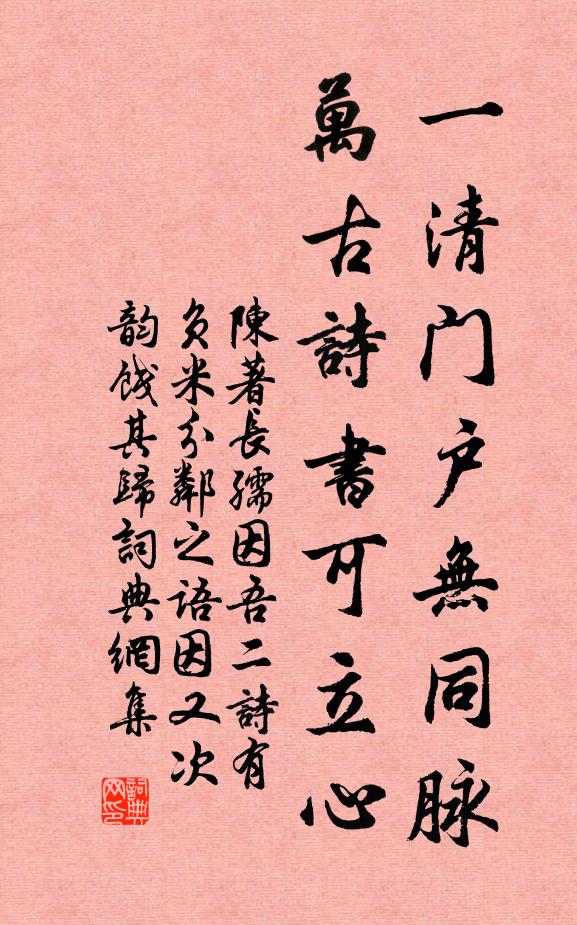 一清門户無同脉
萬古詩書可立心
陳著長孺因吾二詩有
負米分鄰之語因又次
韵餞其歸詞典網集
詞典网印